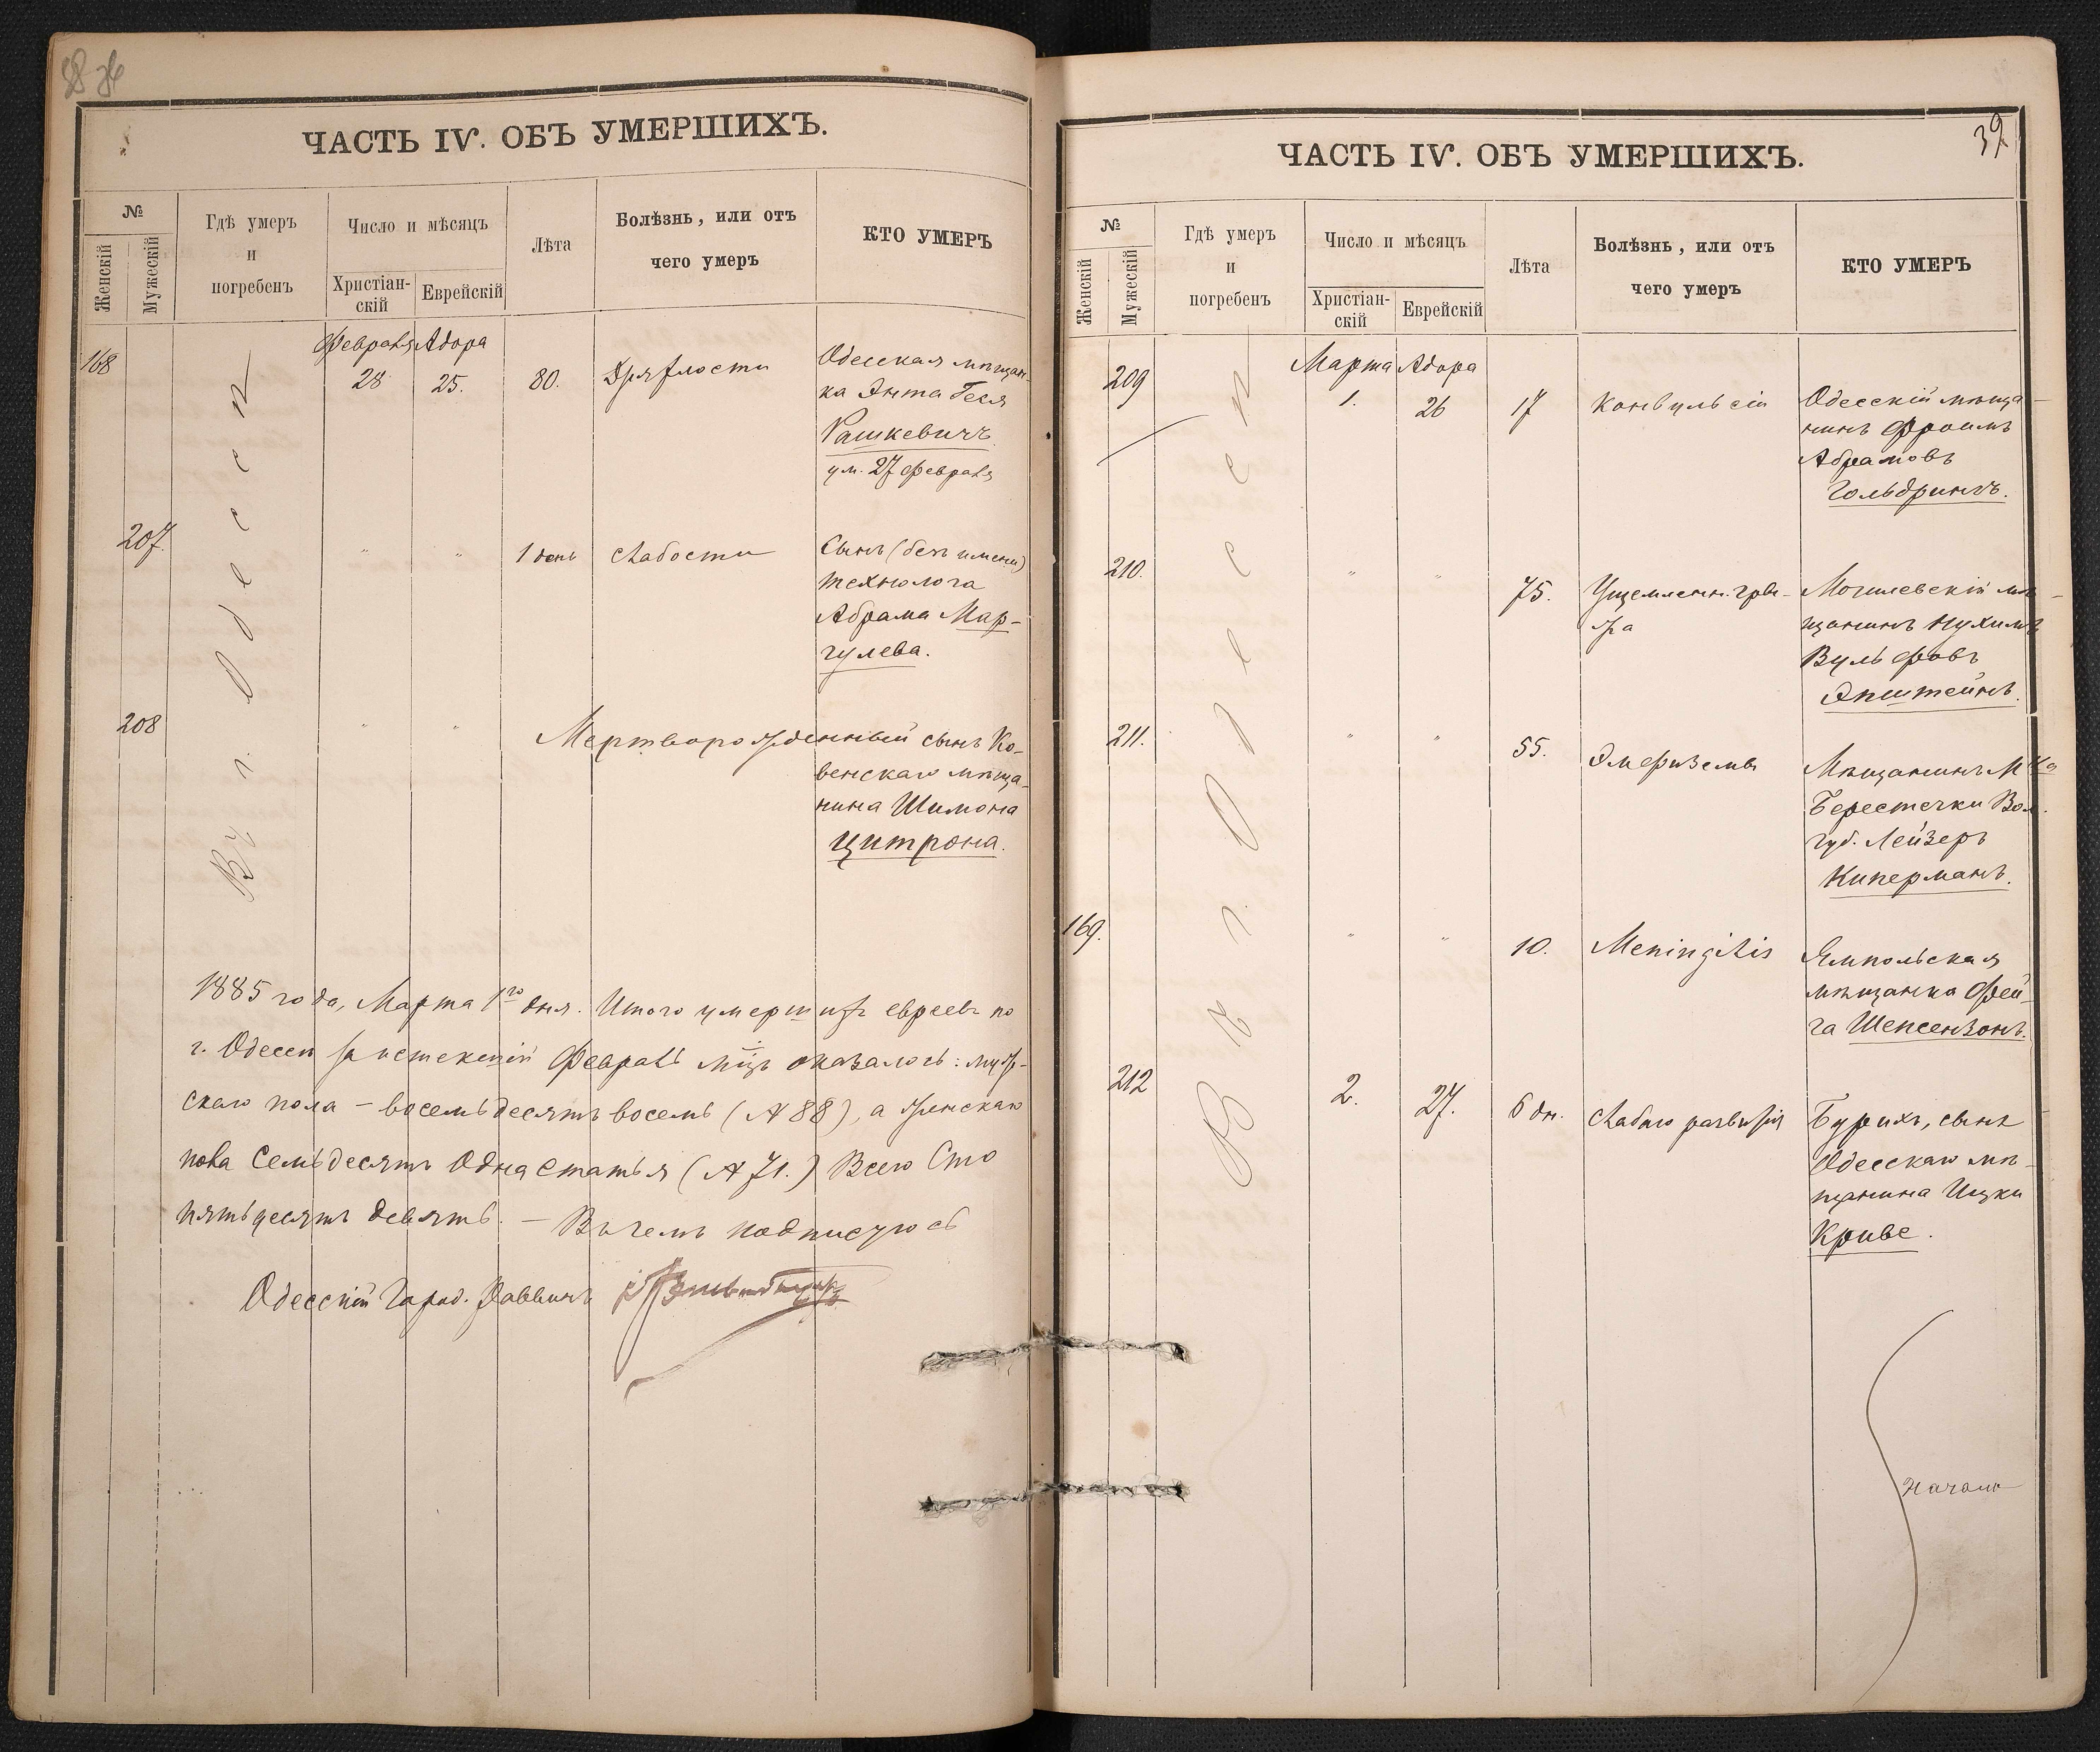 ЧАСТЬ IV. ОБЪ УМЕРШИХЪ.
№
Женскій
Мужескій
Гдѣ умеръ
и
погребенъ
Число и мѣсяцъ
Христіан-
скій
Еврейскій
Лѣта
Болѣзнь, или отъ
чего умеръ
КТО УМЕРЪ
Въ г. Одессѣ
Февраля Адора
168 28 25. 80. Дряхлости Одесская мѣщан-
ка Энта Бея
Рашкевичъ
ум. 27 Февраля
207. " " 1 день Слабости Сынъ (безъ имени)
технолога
Абрама Мар-
гулева.
208 " " Мертворожденный сынъ Ко-
венскаго мѣща-
нина Шимона
Цитрона.
1885 года, Марта 1го дня. Итого умершихъ евреевъ по
г. Одессѣ за истекшій Февраль мцъ оказалось: муж-
скаго пола – восемьдесятъ восемь (№ 88), а женскаго
пола Семьдесятъ Одна статья (№ 71.) Всего Сто
пятьдесятъ девять. – Въ чемъ подписуюсь
Одесскій Город. Раввинъ
39
ЧАСТЬ IV. ОБЪ УМЕРШИХЪ.
№
Женскій
Мужескій
Гдѣ умеръ
и
погребенъ
Число и мѣсяцъ
Христіан-
скій
Еврейскій
Лѣта
Болѣзнь, или отъ
чего умеръ
КТО УМЕРЪ
Въ г. Одессѣ
Марта Адора
209 1. 26 17 Конвульсіи Одесскій мѣща-
нинъ Фроимъ
Абрамовъ
Гольдрингъ.
210. " " 75. Ущемленн. гры-
жа Могилевскій мѣ-
щанинъ Нухимъ
Вульфовъ
Эпштейнъ.
211. " " 55. Эмфизема Мѣщанинъ М-ка
Берестечки Вол.
губ. Лейзеръ
Киперманъ.
169. " " 10. Meningitis Ямпольская
мѣщанка Фей-
га Шепсензонъ.
212 2. 27. 6 дн. Слабаго развитія Бурихъ, сынъ
Одесскаго мѣ-
щанина Ицки
Криве.
Начало